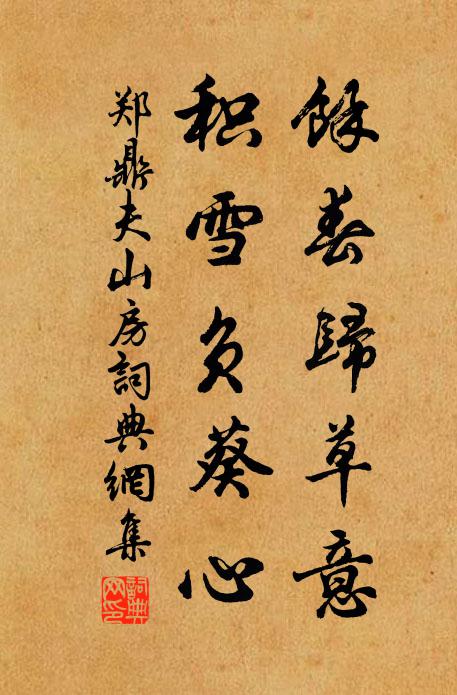 餘春歸草意
积雪负葵心
郑鼎夫山房詞典網集
詞典网印